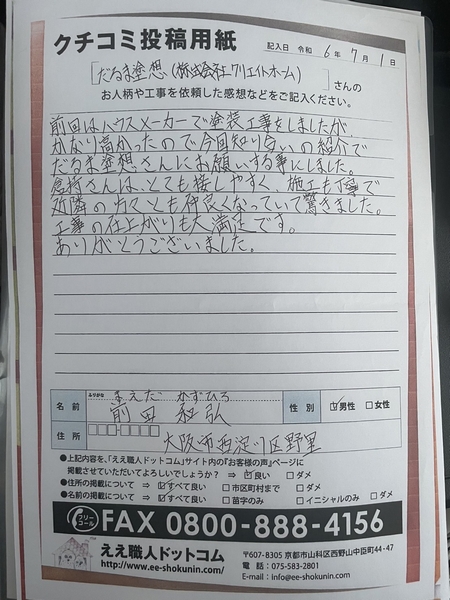 クチコミ投稿用紙
記入日 令和 6年 7月 1日
[だるま塗想(株式会社クリエイトホーム)]さんの
お人柄や工事を依頼した感想などをご記入ください。
前回はハウスメーカーで塗装工事をしましたが、
かなり高かったので今回知り合いの紹介で
だるま塗想さんにお願いする事にしました。
倉持さんは、とても接しやすく、施工も丁寧で
近隣の方々とも仲良くなっていて驚きました。
工事の仕上がりも大満足です。
ありがとうございました。
ふりがな まえだ かずひろ
名前 前田 和弘 性別 ☑男性 □女性
住所 □□□-□□□□ 大阪市西淀川区野里
●上記内容を、「ええ職人ドットコム」サイト内の『お客様の声』ページに
掲載させていただいてよろしいでしょうか? ⇒ ☑良い □ダメ
●住所の掲載について ⇒ ☑すべて良い □市区町村まで □ダメ
●名前の掲載について ⇒ ☑すべて良い □苗字のみ □イニシャルのみ □ダメ
フリーコール FAX 0800-888-4156
ええ職人ドットコム
http://www.ee-shokunin.com/
〒607-8305 京都市山科区西野山中臣町44-47
電話:075-583-2801
E-mail:info@ee-shokunin.com